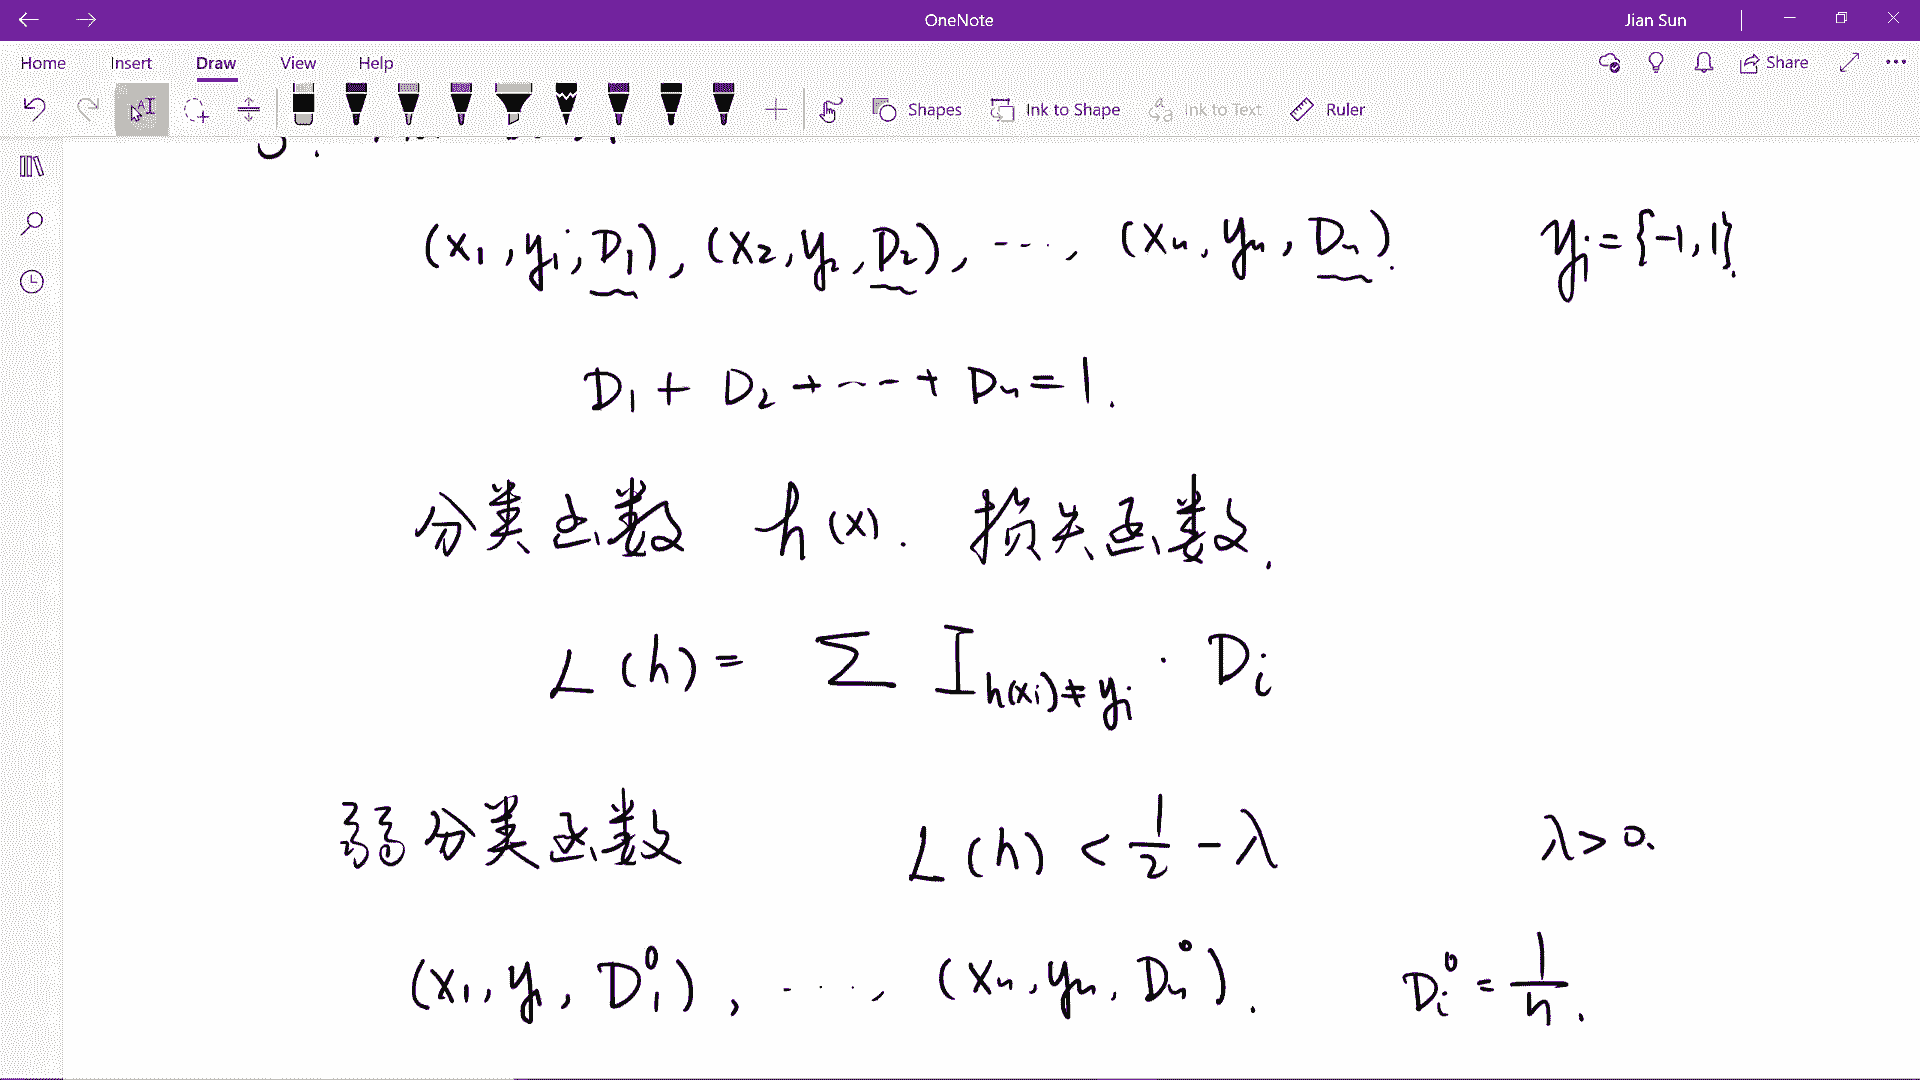 OneNote
Jian Sun
Home Insert Draw View Help
Share
Shapes Ink to Shape Ink to Text Ruler
(x₁, y₁, D₁), (x₂, y₂, D₂), ⋯, (xₙ, yₙ, Dₙ). yᵢ = {-1, 1}.
D₁ + D₂ + ⋯ + Dₙ = 1.
分类函数 h(x). 损失函数.
L(h) = Σ I_{h(xᵢ)≠yᵢ} · Dᵢ
弱分类函数 L(h) < 1/2 - λ λ > 0.
(x₁, y₁, D₁⁰), ⋯, (xₙ, yₙ, Dₙ⁰). Dᵢ⁰ = 1/n.